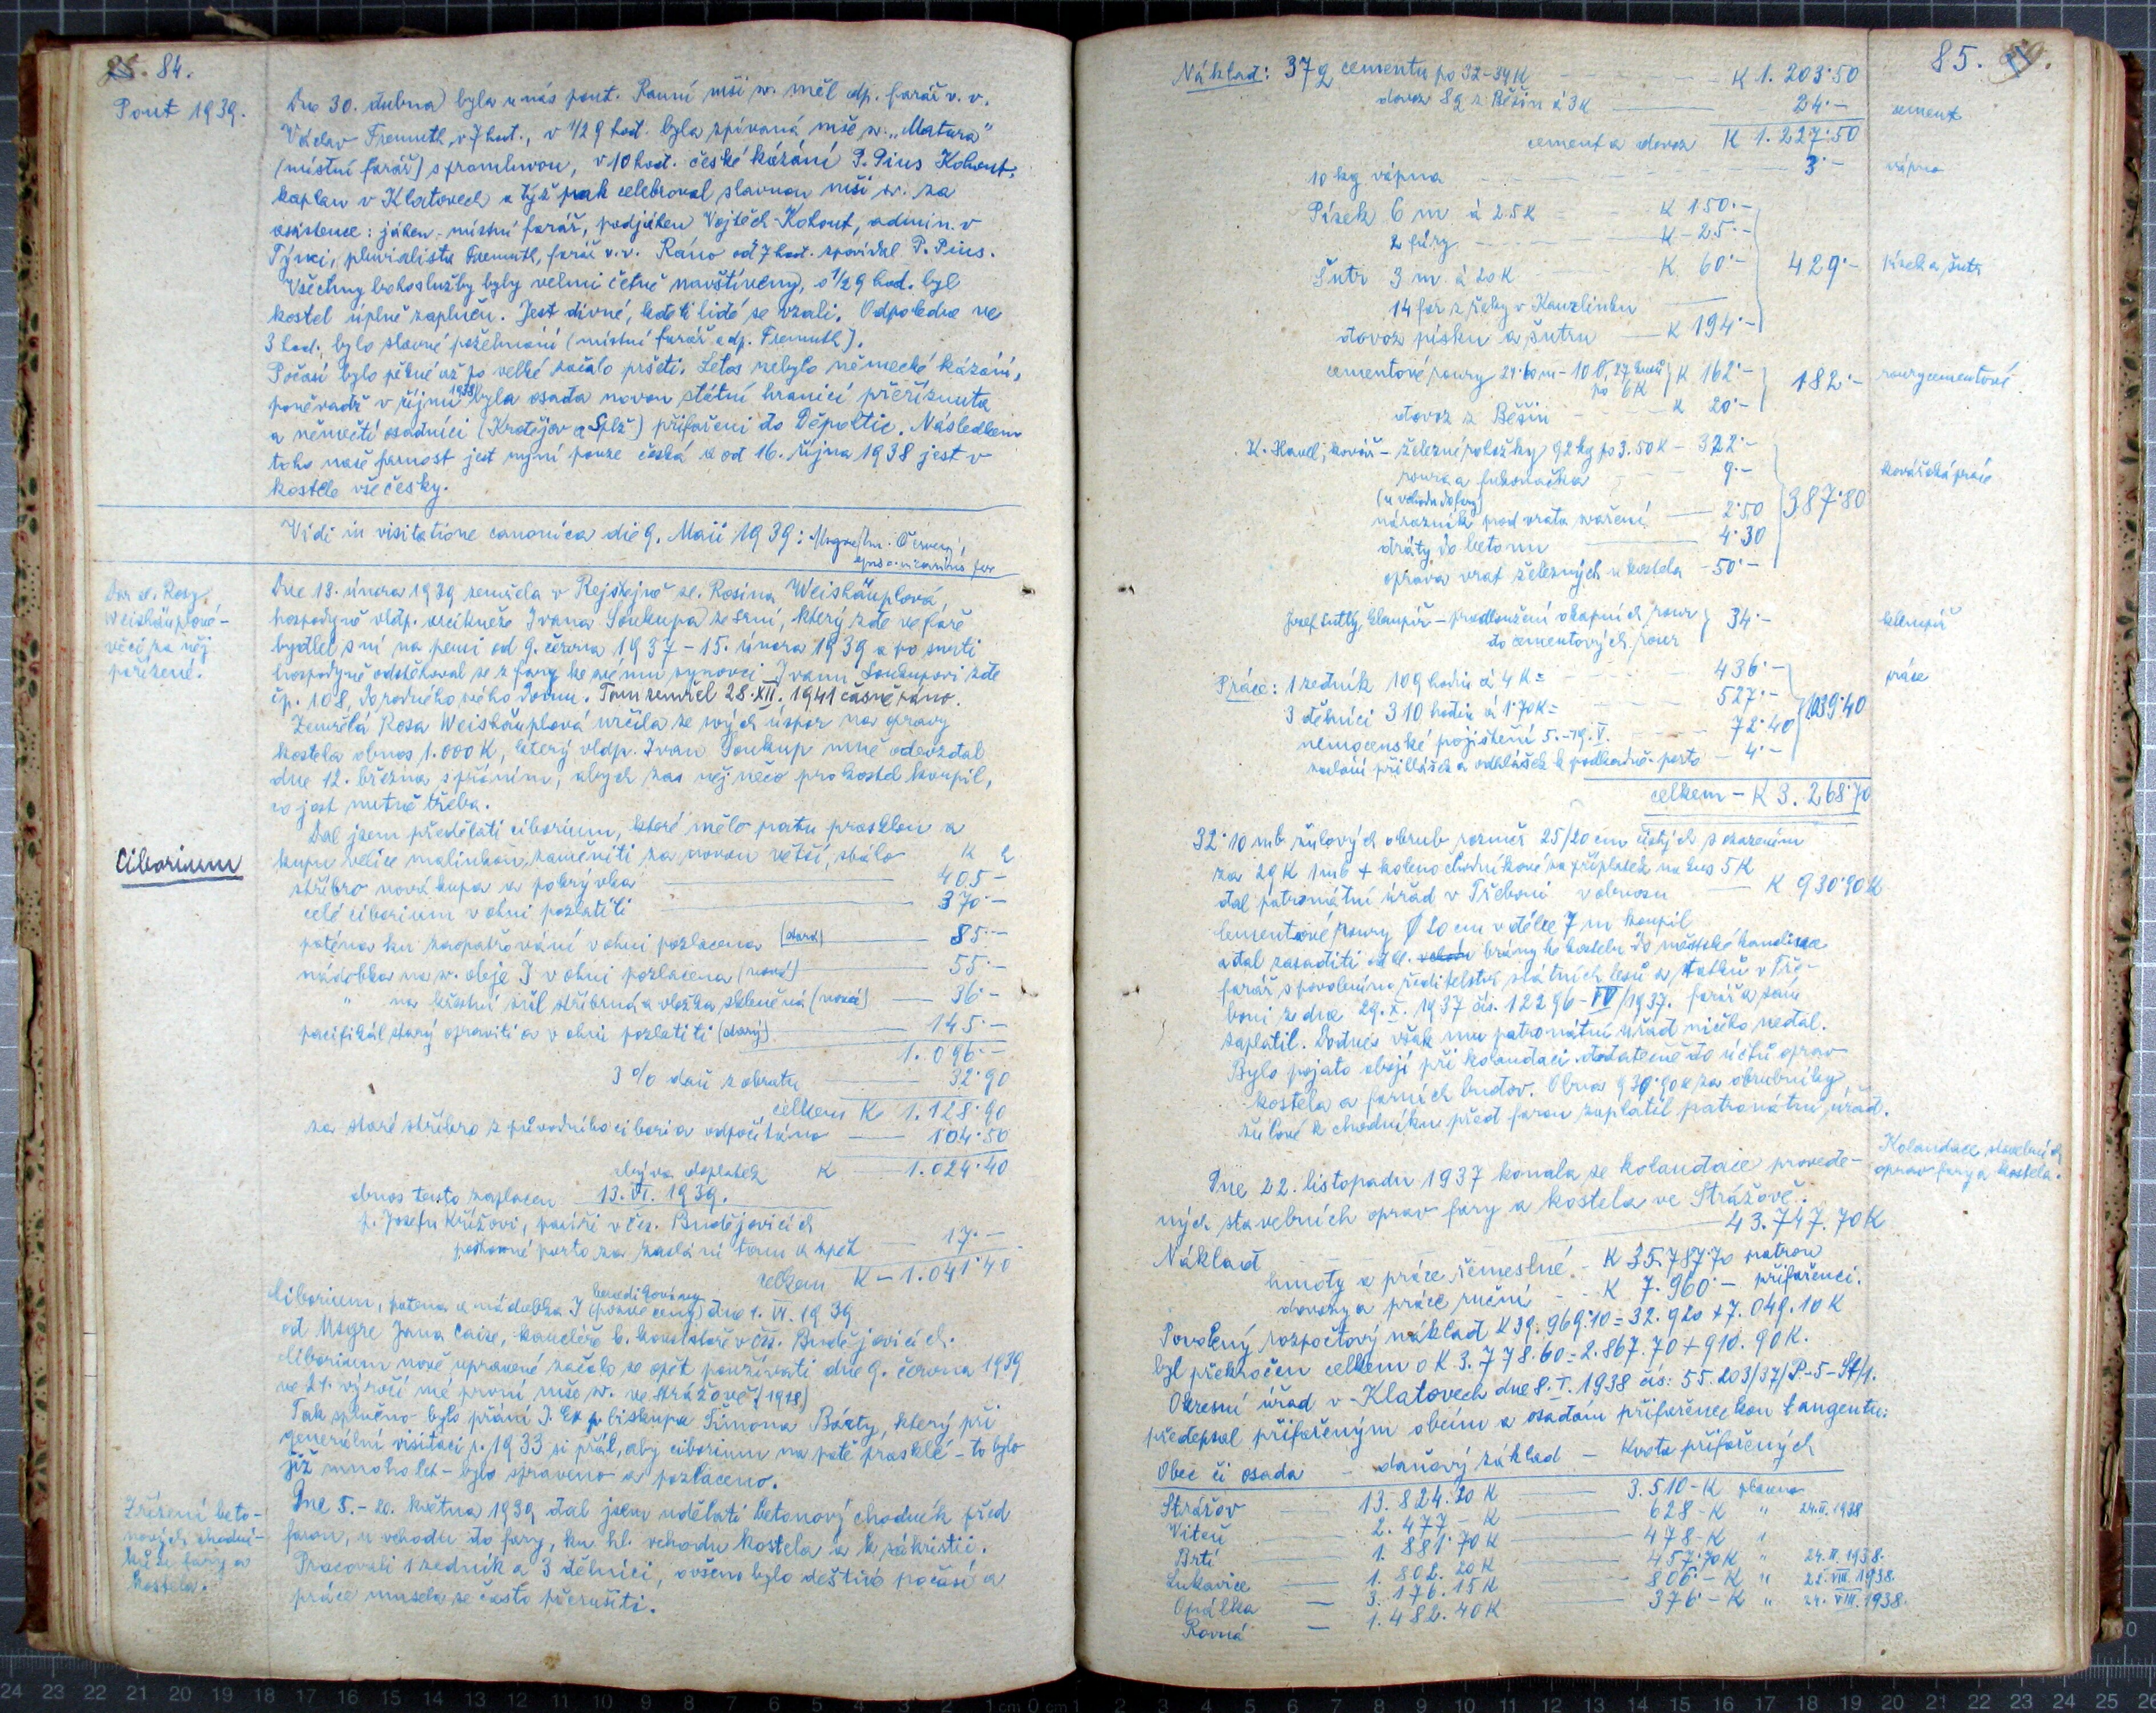 84.
Pout 1939.
Dne 30. dubna byla u nás pout. Ranní mši sv. měl dp. farář v. v.
Václav Fremuth v 7 hod., v 1/2 9 hod. byla zpívaná mše sv. „Matura"
(místní farář) s promluvou, v 10 hod. české kázání P. Pius Kohout,
kaplan v Klatovech a týž pak celebroval slavnou mši sv. za
asistence: jáhen - místní farář, podjáhen Vojtěch Kohout, admin. v
Týnci, pluvialista Fremuth, farář v. v. Ráno od 7 hod. zpovídal P. Pius.
Všechny bohoslužby byly velmi četně navštíveny, o 1/2 9 hod. byl
kostel úplně zaplněn. Jest divné, kde ti lidé se vzali. Odpoledne ve
3 hod. bylo slavné požehnání (místní farář a dp. Fremuth).
Počasí bylo pěkné až po velké začalo pršeti. Letos nebylo německé kázání,
poněvadž v říjnu 1938 byla osada novou státní hranicí přeříznuta
a němečtí osadníci (Kratějov a Splž) přifařeni do Děpoltic. Následkem
toho naše farnost jest nyní pouze česká a od 16. října 1938 jest v
kostele vše česky.
Vidi in visitatione canonica die 9. Maii 1939: Msgre Červený,
Dar sl. Rosy
Weishäuplové -
věci za něj
pořízené.
Dne 13. února 1939 zemřela v Rejštejně sl. Rosina Weishäuplová,
hospodyně vldp. arcikněze Ivana Soukupa ze Srní, který zde ve faře
bydlel s ní na pensi od 9. června 1937 - 15. února 1939 a po smrti
hospodyně odstěhoval se z fary ke svému synovci Ivanu Soukupovi zde
čp. 108, do rodného svého domu. Tam zemřel 28. XII. 1941 časně ráno.
Zemřelá Rosa Weishäuplová určila ze svých úspor na opravy
kostela obnos 1.000 K, který vldp. Ivan Soukup mně odevzdal
dne 12. března s přáním, abych zas něj něco pro kostel koupil,
co jest nutně třeba.
Ciborium
Dal jsem předělati ciborium, které mělo patu prasklou a
kupu velice malinkou, zaměniti za novou větší, stálo K h
stříbro nová kupa a pokrývka 405 -
celé ciborium v ohni pozlatiti 370 -
paténa ku zaopatřování v ohni pozlacena (stará) 85 -
nádobka na sv. oleje I v ohni pozlacena (nová) 55 -
" na křestní sůl stříbrná a vložka skleněná (nová) 36 -
pacifikál starý opraviti a v ohni pozlatiti (starý) 145 -
1.096 -
3 % daň z obratu 32.90
celkem K 1.128.90
za staré stříbro z původního ciboria odpočítáno 104.50
zbývá doplatek K 1.024.40
obnos tento zaplacen 13. VI. 1939.
p. Josefu Křížovi, pasíři v Čes. Budějovicích
poštovné porto za zaslání tam a zpět 17. -
celkem K - 1.041.40
Ciborium, patena a nádobka I benedikovány (posvěceny) dne 1. VI. 1939
od Msgre Jana Caise, kancléře b. konsistoře v Čes. Budějovicích.
Ciborium nově upravené začalo se opět používati dne 9. června 1939
ve 21. výročí mé první mše sv. ve Strážově (1918)
Tak splněno bylo přání J. Ex p. biskupa Šimona Bárty, který při
generální visitaci r. 1933 si přál, aby ciborium na patě prasklé - to bylo
již mnoho let - bylo spraveno a pozlaceno.
Zřízení beto-
nových chodní-
ků u fary a
kostela.
Dne 5. - 20. května 1939 dal jsem udělati betonový chodník před
farou, u vchodu do fary, ku hl. vchodu kostela a k sákristii.
Pracovali 1 zedník a 3 dělníci, ovšem bylo deštivé počasí a
práce musela se často přerušiti.
85.
Náklad: 37 q cementu po 32-34 K K 1.203.50
dovoz 8 q z Běšin á 3 K 24. -
cement
cement a dovoz K 1.227.50
10 kg vápna 3. -
vápno
Písek 6 m á 25 K K 150. -
2 fúry K - 25. -
Šutr 3 m á 20 K K 60. -
429. -
písek a šutr
14 fůr z řeky v Kauzlinku
dovoz písku a šutru K 194. -
cementové roury 27 kusů po 6 K K 162. -
182. -
roury cementové
dovoz z Běšin K 20. -
K. Havel, kovář - železné položky 92 kg po 3.50 K - 322. -
9. -
kovářská práce
(u vchodu do fary)
nárazník pod vrata vaření 2.50
387.80
dráty do betonu 4.30
oprava vrat železných u kostela - 50. -
Josef klempíř - prodloužení okapních rour
do cementových rour 34. -
klempíř
Práce: 1 zedník 109 hodin á 4 K = 436. -
práce
3 dělníci 310 hodin á 1.70 K = 527. -
1039.40
nemocenské pojištění 5. - 19. V. 72.40
zaslání přihlášek a odhlášek k podkladně - porto - 4. -
celkem - K 3.268.70
32.10 mb žulových obrub rozměr 25/20 cm čistých s osazením
za 29 K 1 mb + koleno chodníkové za příplatek na kus 5 K
dal patronátní úřad v Třeboni v obnosu K 930.90 K
Cementové roury Ø 20 cm v délce 7 m koupil
a dal zasaditi od brány ke kostelu do městské kanalisace
farář s povolením ředitelství státních lesů a statků v Tře-
boni ze dne 29. X. 1937 čís. 12296 - IV/1937. farář a sám
zaplatil. Dodnes však mu patronátní úřad ničeho nedal.
Bylo pojato obojí při kolaudaci dodatečně do účtů oprav
kostela a farních budov. Obnos 930.90 K za obrubníky
žulové k chodníku před farou zaplatil patronátní úřad.
Kolaudace stavebních
oprav fary a kostela.
Dne 22. listopadu 1937 konala se kolaudace provede-
ných stavebních oprav fary a kostela ve Strážově.
Náklad 43.747.70 K
hmoty a práce řemeslné - K 35.787.70 patron
dovozy a práce ruční - K 7.960. - přifařenci.
Povolený rozpočtový náklad K 39.969.10 = 32.920 + 7.049.10 K
byl překročen celkem o K 3.778.60 = 2.867.70 + 910.90 K.
Okresní úřad v Klatovech dne 8. I. 1938 čís: 55.203/37/P-5-St/1.
předepsal přifařeným obcím a osadám přifařeneckou tangentu:
Obec či osada - daňový základ - Kvota přifařených
Strážov 13.824.20 K 3.510 - K placeno
Viteň 2.477 - K 628 - K " 24. II. 1938
Brtí 1.881.70 K 478 - K "
Lukavice 1.802.20 K 457.70 K " 24. II. 1938.
Opálka 3.176.15 K 806. - K " 22. VIII. 1938.
Rovná 1.482.40 K 376. - K " 24. VIII. 1938.